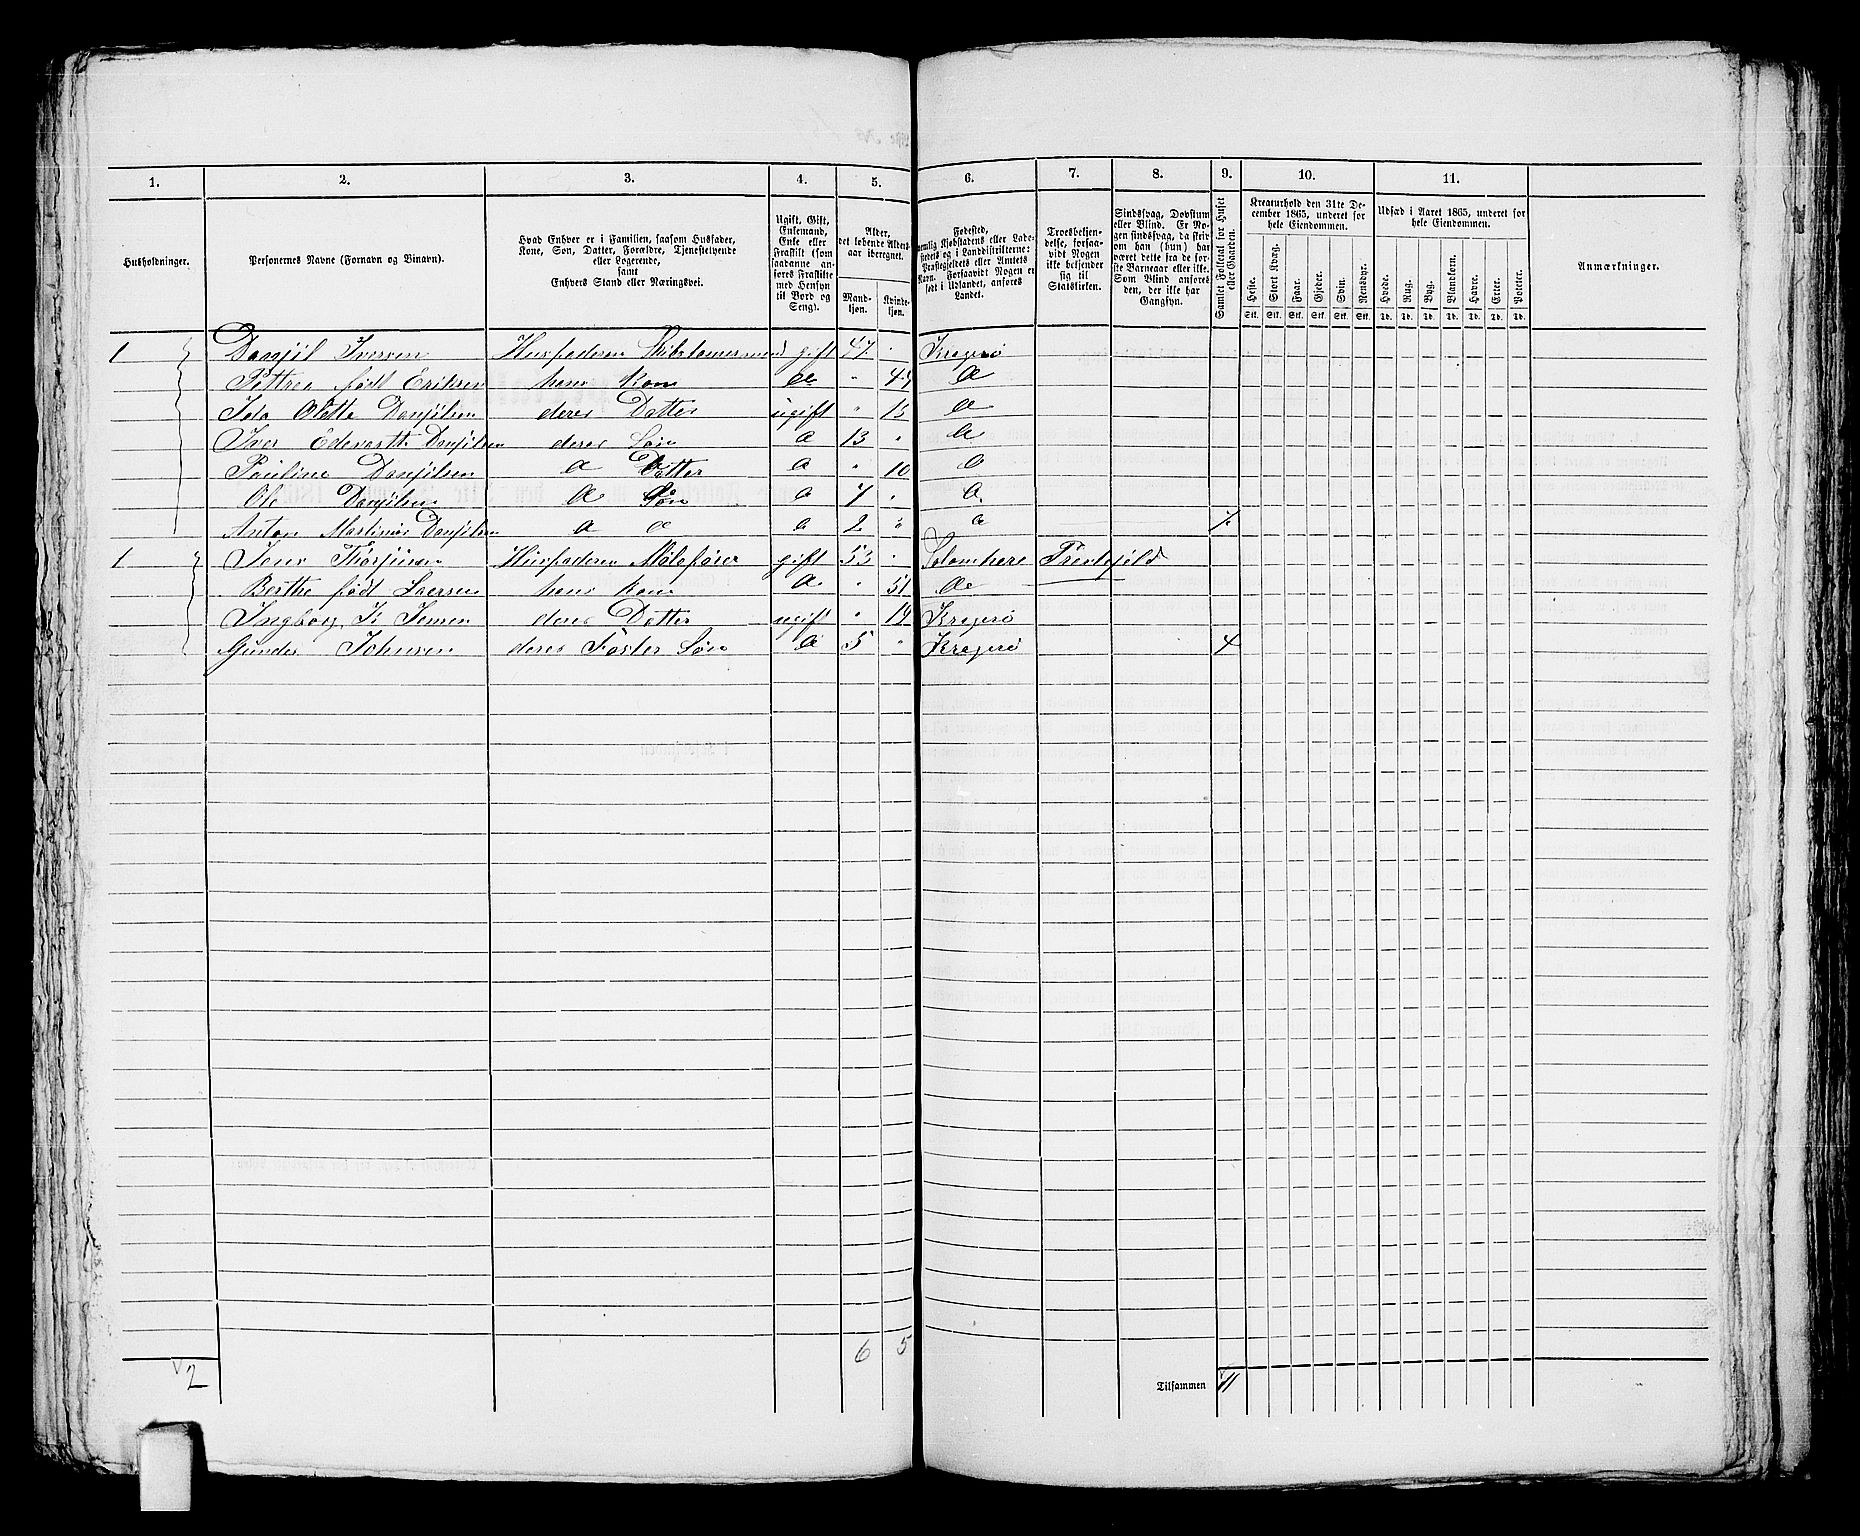 1. 2. 3. 4. 5. 6. 7. 8. 9. 10. 11.
Husholdninger.
Personernes Navne (Fornavn og Binavn).
Hvad Enhver er i Familien, saasom Husfader,
Kone, Søn, Datter, Forældre, Tjenestetyende
eller Logerende,
samt
Enhvers Stand eller Næringsvei.
Ugift, Gift,
Enkemand,
Enke eller
Fraskilt (som
saadanne an-
føres Fraskilte
med Hensyn
til Bord og
Seng).
Alder,
det løbende Alders-
aar iberegnet.
Mand-
kjøn.
Kvinde-
kjøn.
Fødested,
nemlig Kjøbstadens eller Lade-
stedets og i Landdistrikterne:
Præstegjeldets eller Amtets
Navn. Forsaavidt Nogen er
født i Udlandet, anføres
Landet.
Troesbekjen-
delse, forsaa-
vidt Nogen
ikke bekjender
sig til
Statskirken.
Sindssvag, Døvstum
eller Blind. Er No-
gen sindssvag, da skriv
om han (hun) har
været dette fra de før-
ste Barneaar eller ikke.
Som Blind anføres
den, der ikke har
Gangsyn.
Samlet Folketal for Huset
eller Gaarden.
Kreaturhold den 31te De-
cember 1865, underet for
hele Eiendommen.
Heste. Stort Kvæg. Faar. Gjeder. Svin. Rensdyr.
Stk. Stk. Stk. Stk. Stk. Stk.
Udsæd i Aaret 1865, underet for
hele Eiendommen.
Hvede. Rug. Byg. Blandkorn. Havre. Erter. Poteter.
Td. Td. Td. Td. Td. Td. Td.
Anmærkninger.
1 Danjil Iversen Husfaderen Skibstømermand gift 47 " Kragerø
Pettrea født Eriksen hans Kone " a
Ida Olette Danjilsen deres Datter ugift " 15 a
Iver Edevarth Danjilsen deres Søn a 13 " a
Pauline Danjilsen a Datter a " 10 a
Ole Danjilsen a Søn a 7 " a
Anton Martinius Danjilsen a a a 2 " a 7
1 Jens Thorjusen Husfaderen gift 53 "
Berthe født Laersen hans Kone a " 51 a
Ingborg K Jensen deres Datter ugift " 19 Kragerø
Gunder Johnsen deres Foster Søn a 5 " Kragerø 4
6 5
2
Tilsammen 11